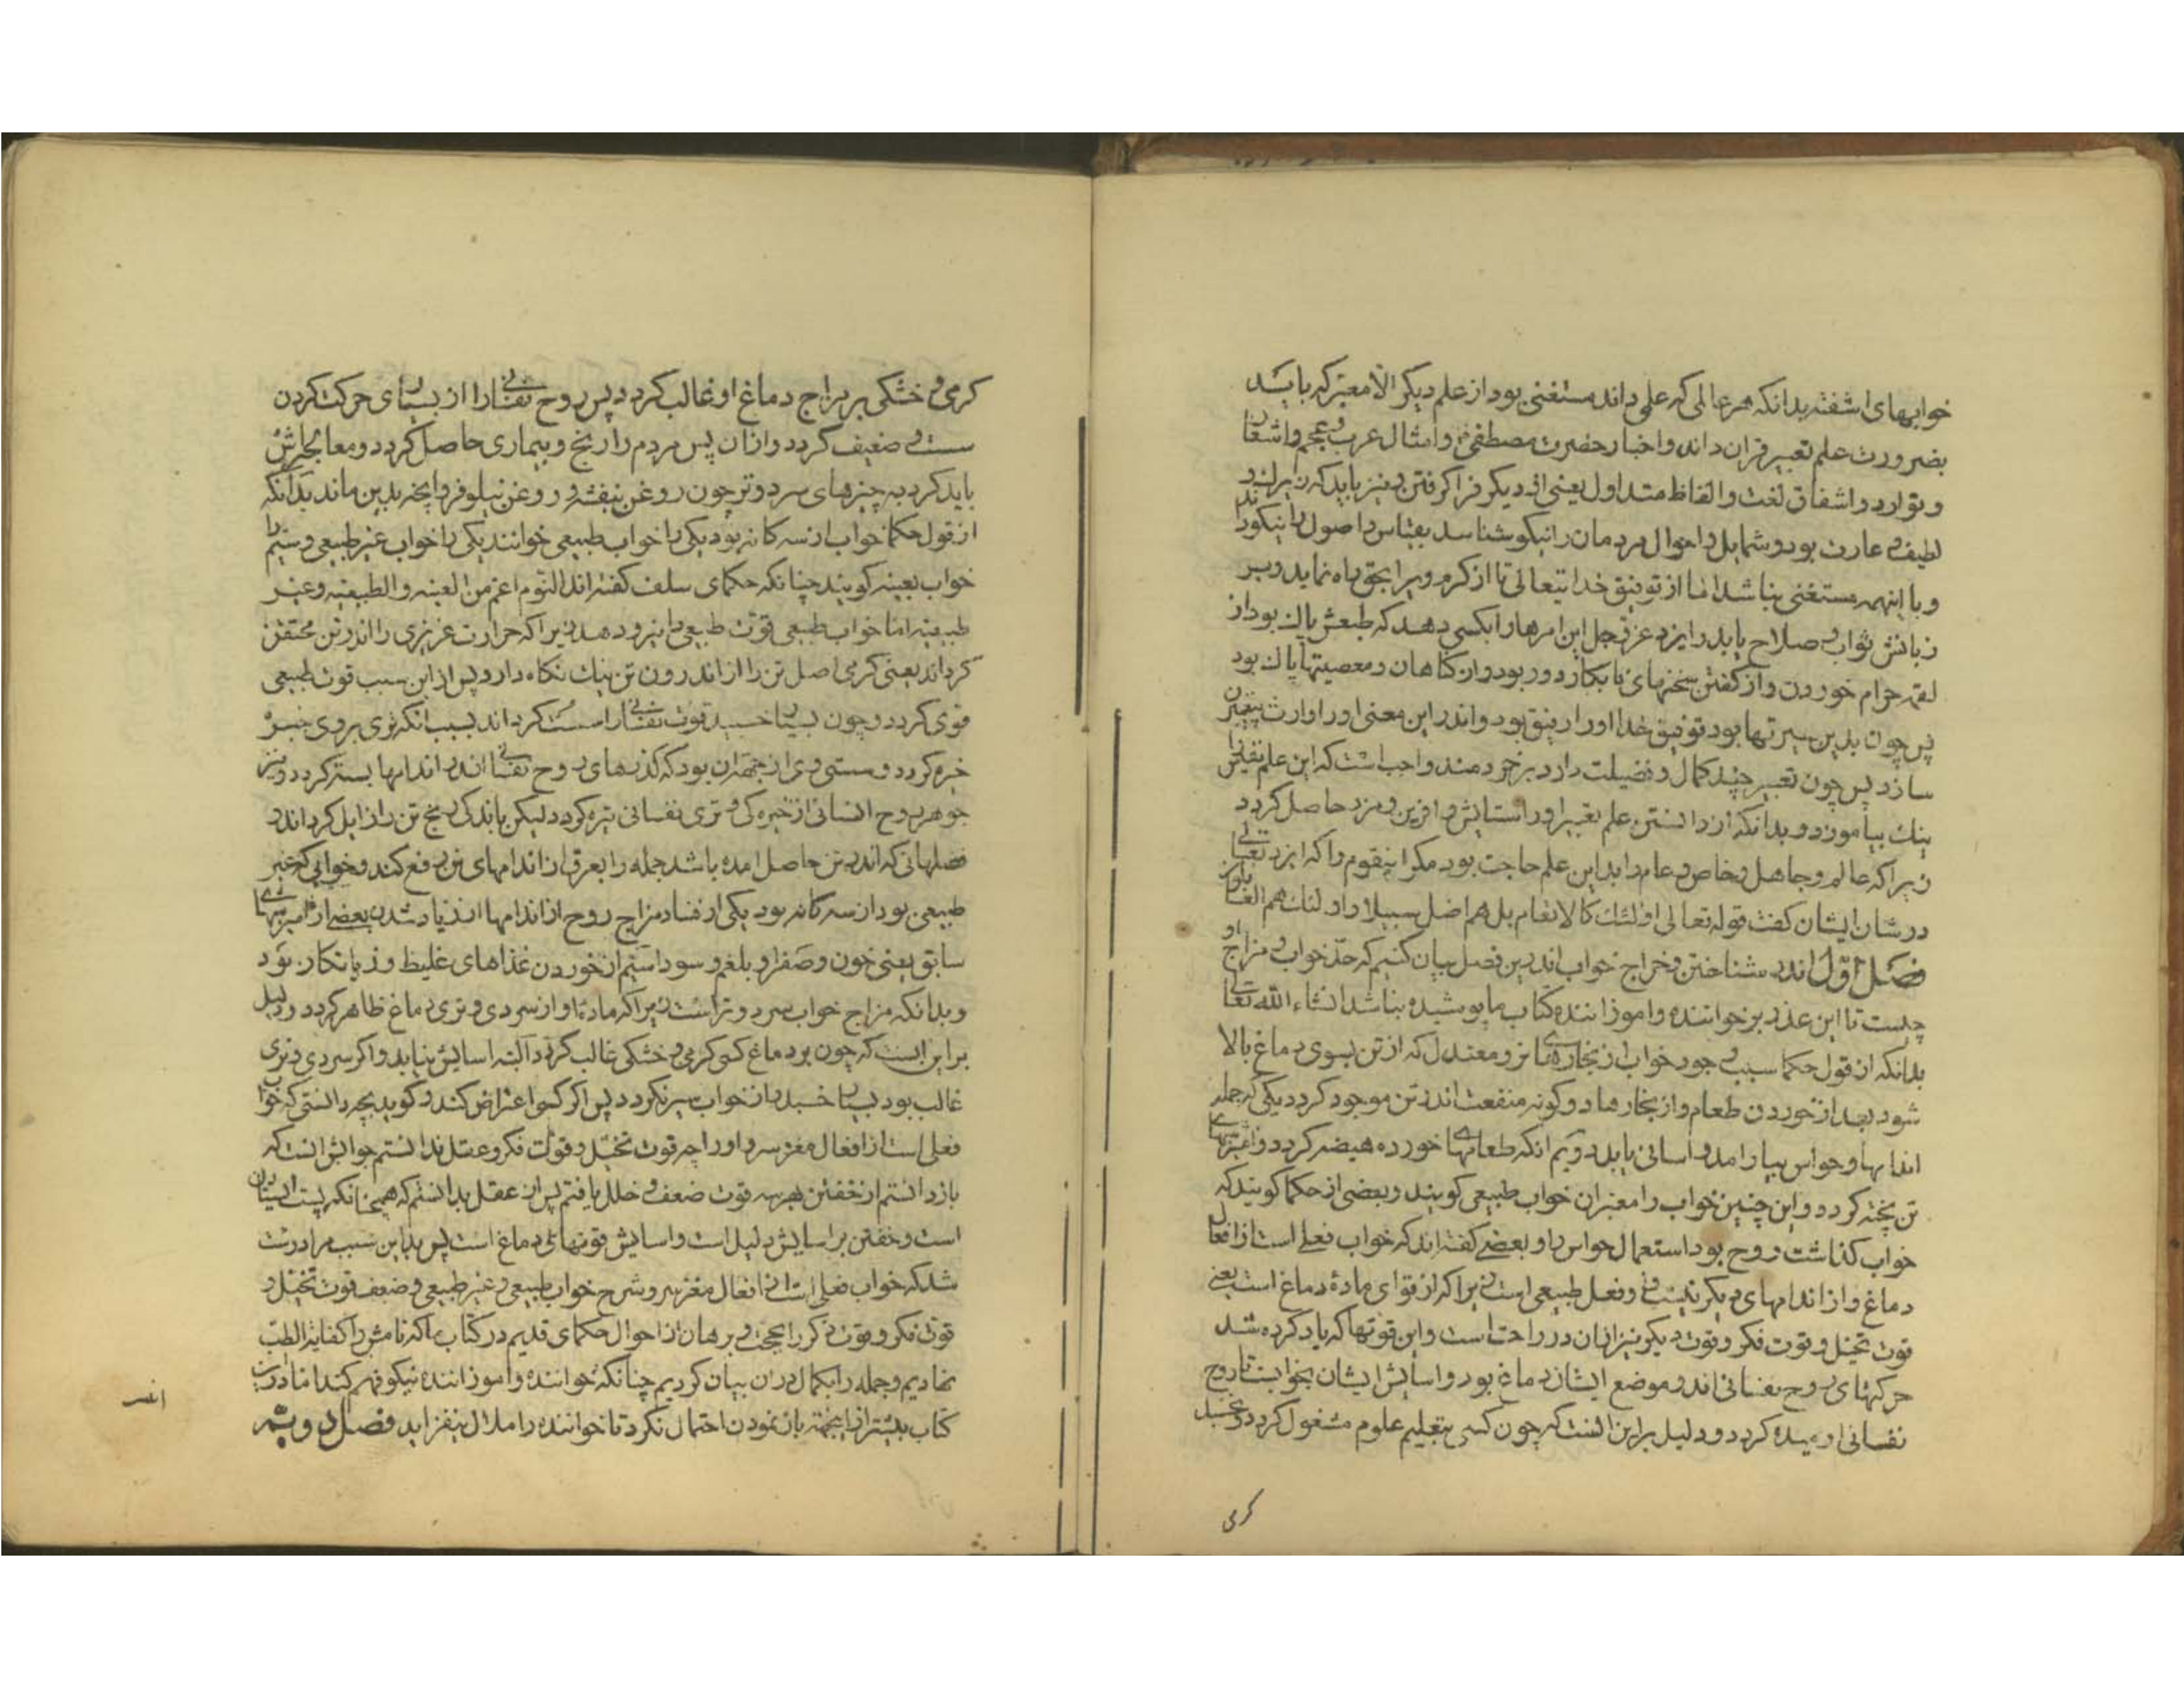 خوابهای اشفته بدانکه هر عالمی که علمی داند مستغنی بود از علم دیکر الا معبر که باید
بضرورت علم تعبیر قران داند واخبار حضرت مصطفی وامثال عرب و عجم واشعار
ونوادر واشقاق لغت والفاظ متداول یعنی از دیکر فرا کرفتن ونیز باید که زیرک و
لطیف و عارف بود وشمایل واحوال مردمان را نیکو شناسد بقیاس واصول را نیکو داند
وبا اینهمه مستغنی نباشد اما از توفیق خدایتعالی تا از کرم ویرا بحق راه نماید وبر
زبانش ثواب و صلاح یابد وایزد عز وجل این امرها را بکسی دهد که طبعش پاک بود از
لقمه حرام خوردن واز کفتن سخنهای نابکار دور بود واز کناهان ومعصیتها پاک بود
پس چون بدین سیرتها بود توفیق خدا اورا رفیق بود واندر این معنی اورا وارث پیغمبران
سازد پس چون تعبیر چند کمال و فضیلت دارد بر خردمند واجب است که این علم نفیس را
نیک بیاموزد وبدانکه از دانستن علم تعبیر اورا ستایش وافرین ومزد حاصل کردد
زیراکه عالم وجاهل وخاص وعام را بدین علم حاجت بود مکر اینقوم را که ایزد تعالی
در شان ایشان کفت قوله تعالی اولئک کالانعام بل هم اضل سبیلا واولئک هم الغافلون
فصل اول اندر شناختن ومزاج خواب اندرین فصل بیان کنیم که حد خواب و مزاج او
چیست تا این عذر بر خواننده واموزاننده کتاب ما پوشیده نباشد انشاء الله تعالی
بدانکه از قول حکما سبب وجود خواب از بخارهای تر ومعتدل که از تن بسوی دماغ بالا
شود بعد از خوردن طعام واز بخارها دو کونه منفعت اندر تن موجود کردد یکی که جمله
اندامها وحواس بیارامد واسانی یابد دویم انکه طعامهای خورده هضم کردد و
تن پخته کردد واین چنین خواب را معبران خواب طبیعی کویند وبعضی از حکما کویند که
خواب کذاشت روح بود استعمال حواس را وبعضی کفته اند که خواب فعلی است از افعال
دماغ واز اندامهای دیکر نیست و فعل طبیعی است زیراکه از قوای ماده دماغ است یعنی
قوت تخیل وقوت فکر وقوت دیکر نیز از ان در راحت است واین قوتها که یاد کرده شد
حرکتهای روح نفسانی اند وموضع ایشان دماغ بود واسایش ایشان بخوابست تا روح
نفسانی کردد ودلیل براین انست که چون کسی بتعلیم علوم مشغول کردد وتخیل
کرمی
کرمی و خشکی بر مزاج دماغ او غالب کردد پس روح نفسانی را از بسیاری حرکت کردن
سستی و ضعیف کردد وازان پس مردم را رنج وبیماری حاصل کردد ومعالجه اش
باید کرد به چیزهای سرد وتر چون روغن بنفشه و روغن نیلوفر وانچه بدین ماند بدانکه
از قول حکما خواب از سه کانه بود یکی را خواب طبیعی خوانند یکی را خواب غیر طبیعی وسیم را
خواب کویند چنانکه حکمای سلف کفته اند النوم اعم من والطبیعیه وغیر
طبیعیه اما خواب طبیعی قوت طبیعی را نیرو دهد زیراکه حرارت غریزی را اندر تن محتقن
کرداند یعنی کرمی اصل تن را از اندرون تن نیک نکاه دارد پس از این سبب قوت طبیعی
قوی کردد وچون بسیار خسبد قوت نفسانی را سست کرداند بسبب انکه تری بر وی
خیره کردد و سستی وی از جهة ان بود که کذرهای روح نفسانی اندر اندامها بسته کردد ونیز
جوهر روح انسانی از خیره کی و تری نفسانی تیره کردد لیکن ماندکی رنج تن را زایل کرداند و
فضلهائی که اندر تن حاصل امده باشد جمله را بعرق از اندامهای تن دفع کند وخوابی که غیر
طبیعی بود از سه کانه بود یکی از فساد مزاج روح از اندامها از زیاد شدن بعضی از
سابق یعنی خون وصفرا وبلغم وسودا سیم از خوردن غذاهای غلیظ وزیانکار بود
وبدانکه مزاج خواب سرد وتر است زیراکه ماده او از سردی و تری دماغ ظاهر کردد ودلیل
براین انست که چون بر دماغ کسی کرمی و خشکی غالب کردد البته اسایش نیابد واکر سردی وتری
غالب بود بسیار خسبد واز خواب سیر نکردد پس اکر کسی اعتراض کند وکوید بچه دانستی که خواب
فعلی است از افعال مغز سر واورا چه قوت تخیل وقوت فکر وعقل ندانستم جوابش انست که
باز دانستم از خفتن بهر سه قوت ضعف و خلل یافتم پس از عقل بدانستم که همچنانکه
است وخفتن بر اسایش دلیل است واسایش قوتهای دماغ است پس بدین سبب مرا درست
شد که خواب فعلی است از افعال مغز سر وشرح خواب طبیعی و غیر طبیعی وضعف قوت تخیل و
قوت فکر وقوت ذکر را بحجت و برهان از احوال حکمای قدیم در کتاب ما که نامش را کفایة الطب
نهادیم وجمله را بکمال دران بیان کردیم چنانکه خواننده واموزاننده نیکو فهم کند اما در این
کتاب بیشتر از اینجهة باز نمودن احتمال نکرد تا خواننده را ملال نیفزاید فصل دویم